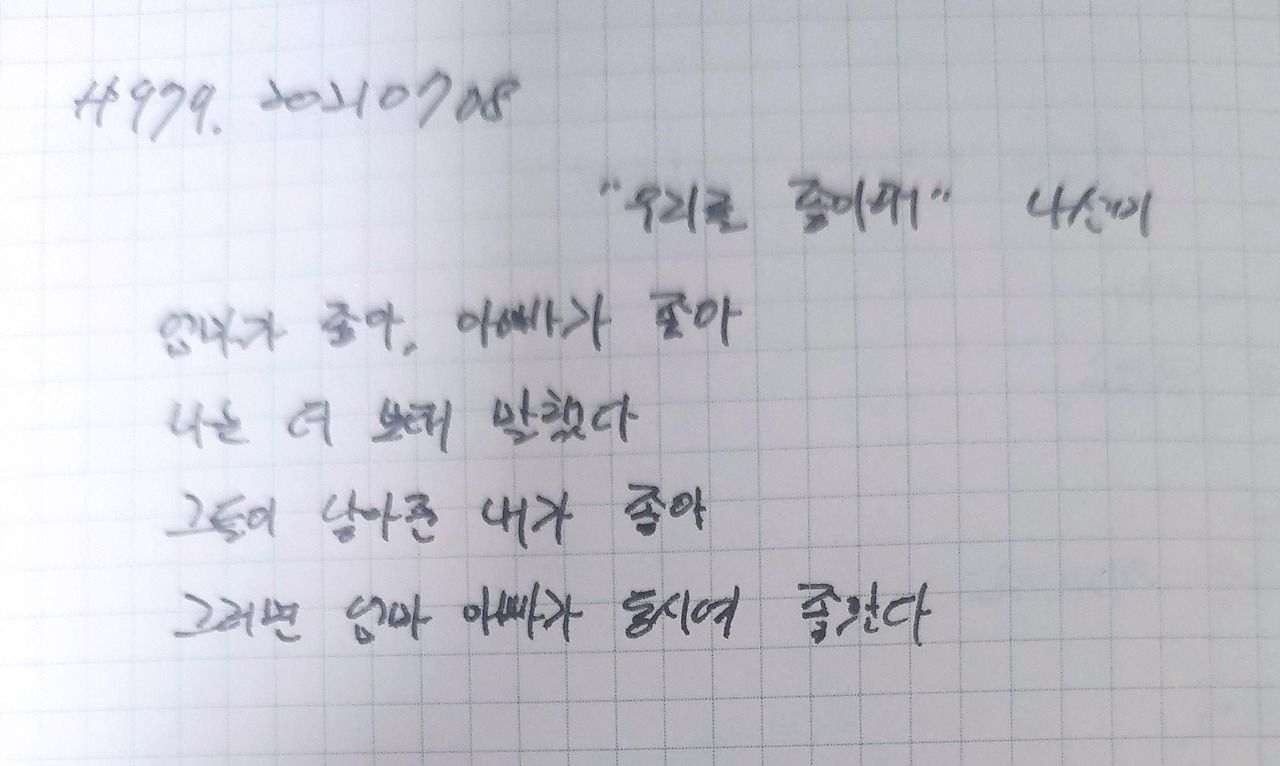 #979. 20210708
"우리를 좋아해"
엄마가 좋아, 아빠가 좋아
나는 더 보태 말했다
그들이 낳아준 내가 좋아
그러면 엄마 아빠가 동시에